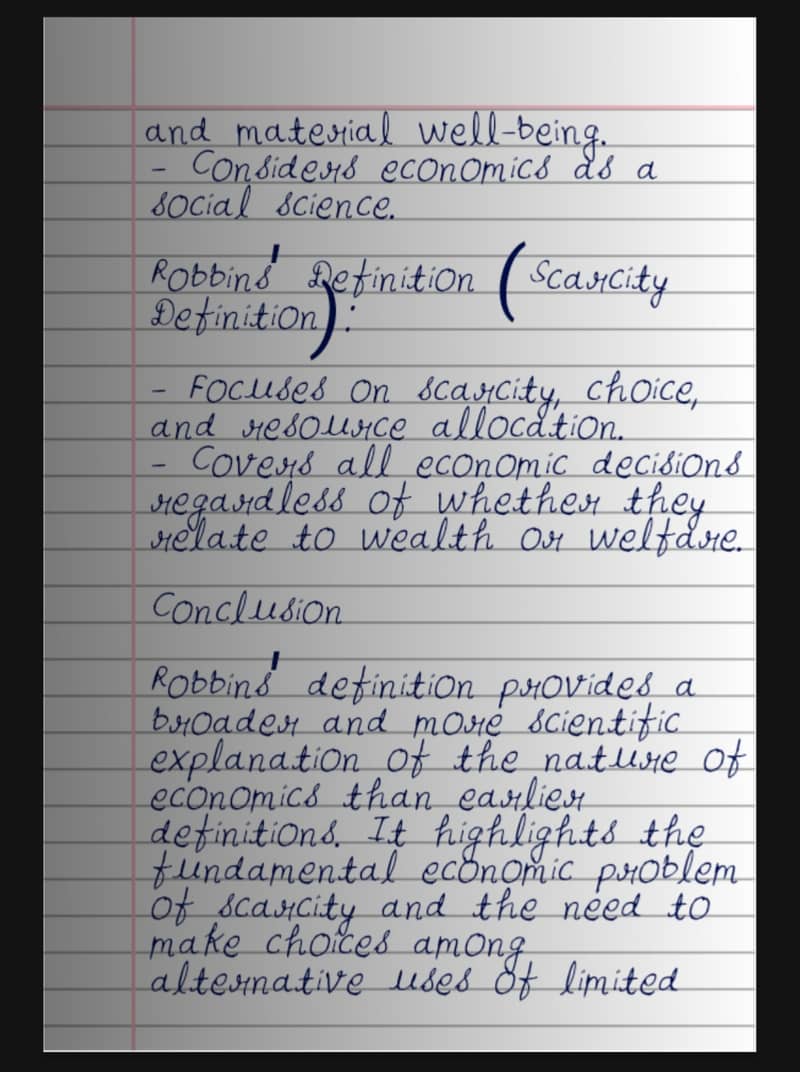 and material well-being.
- Considers economics as a
social science.
Robbins' Definition (Scarcity
Definition):
- Focuses on scarcity, choice,
and resource allocation.
- Covers all economic decisions
regardless of whether they
relate to wealth or welfare.
Conclusion
Robbins' definition provides a
broader and more scientific
explanation of the nature of
economics than earlier
definitions. It highlights the
fundamental economic problem
of scarcity and the need to
make choices among
alternative uses of limited